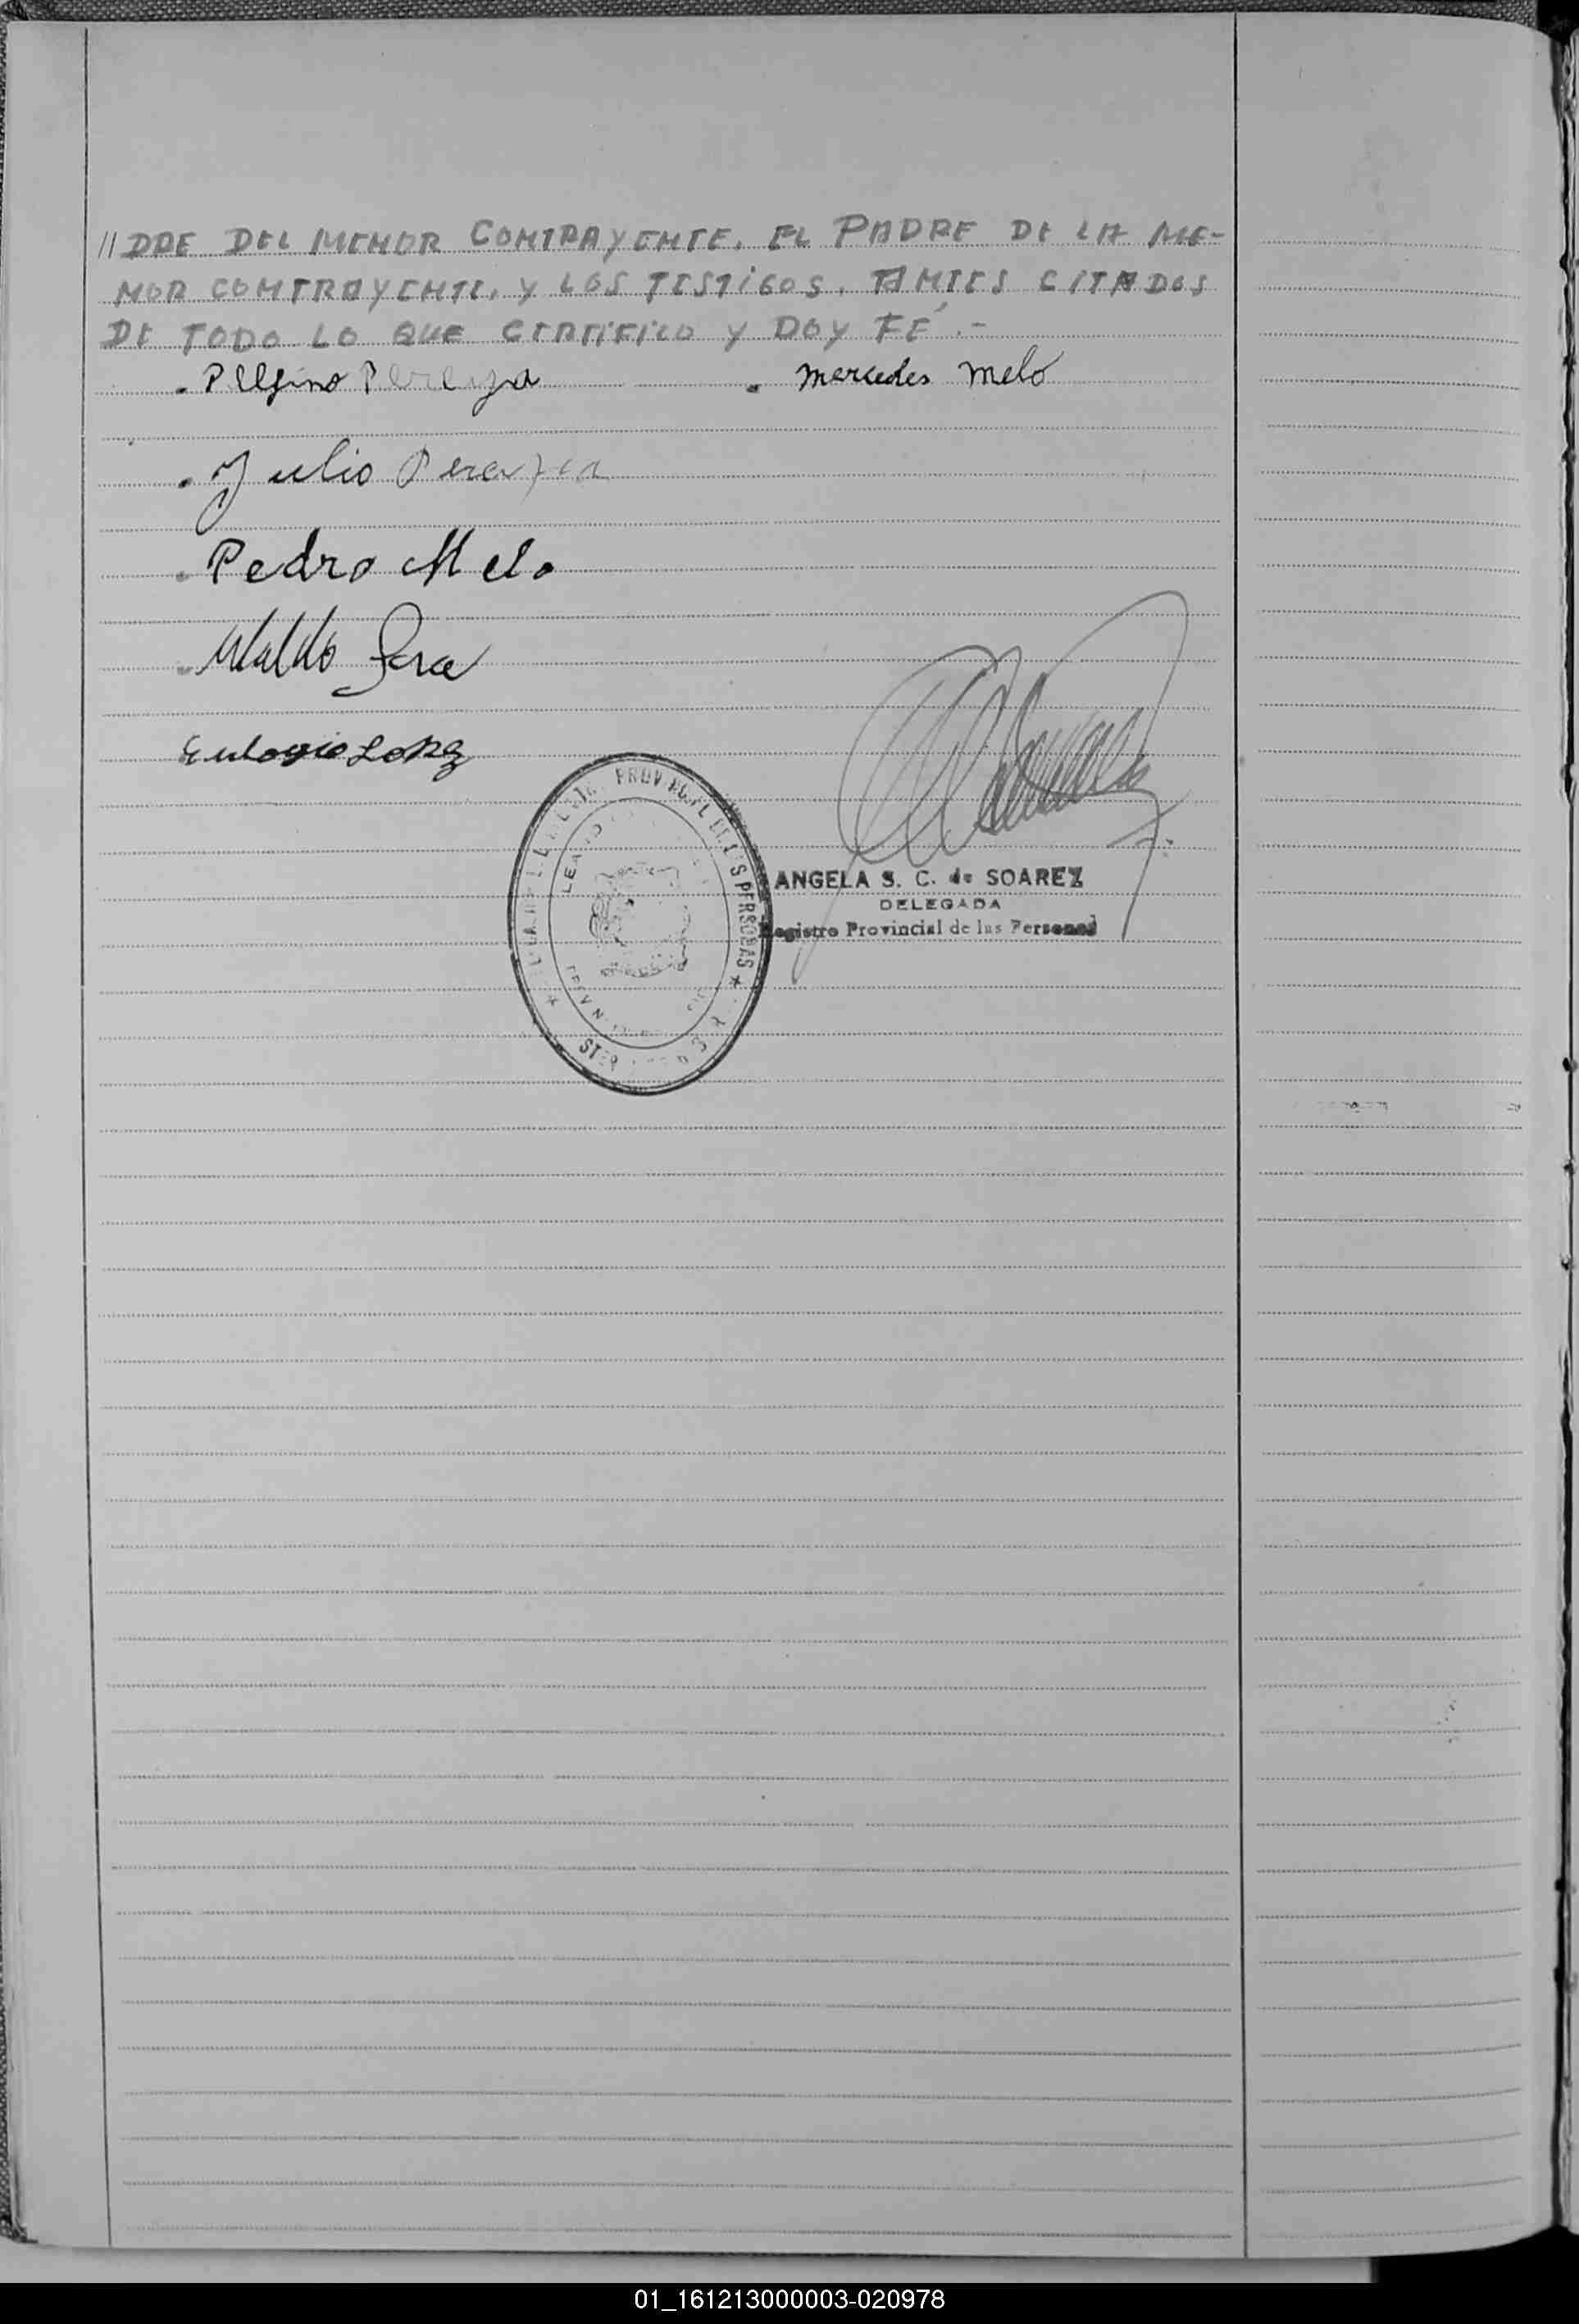 //DRE DEL MENOR CONTRAYENTE, EL PADRE DE LA ME-
NOR CONTRAYENTE, Y LOS TESTIGOS, ANTES CITADOS
DE TODO LO QUE CERTIFICO Y DOY FÉ.-
Pereyra mercedes melo
Julio
Pedro Melo
Eulogio
PROVINCIAL DE LAS PERSONAS
ANGELA S. C. de SOAREZ
DELEGADA
Registro Provincial de las Personas
01_161213000003-020978